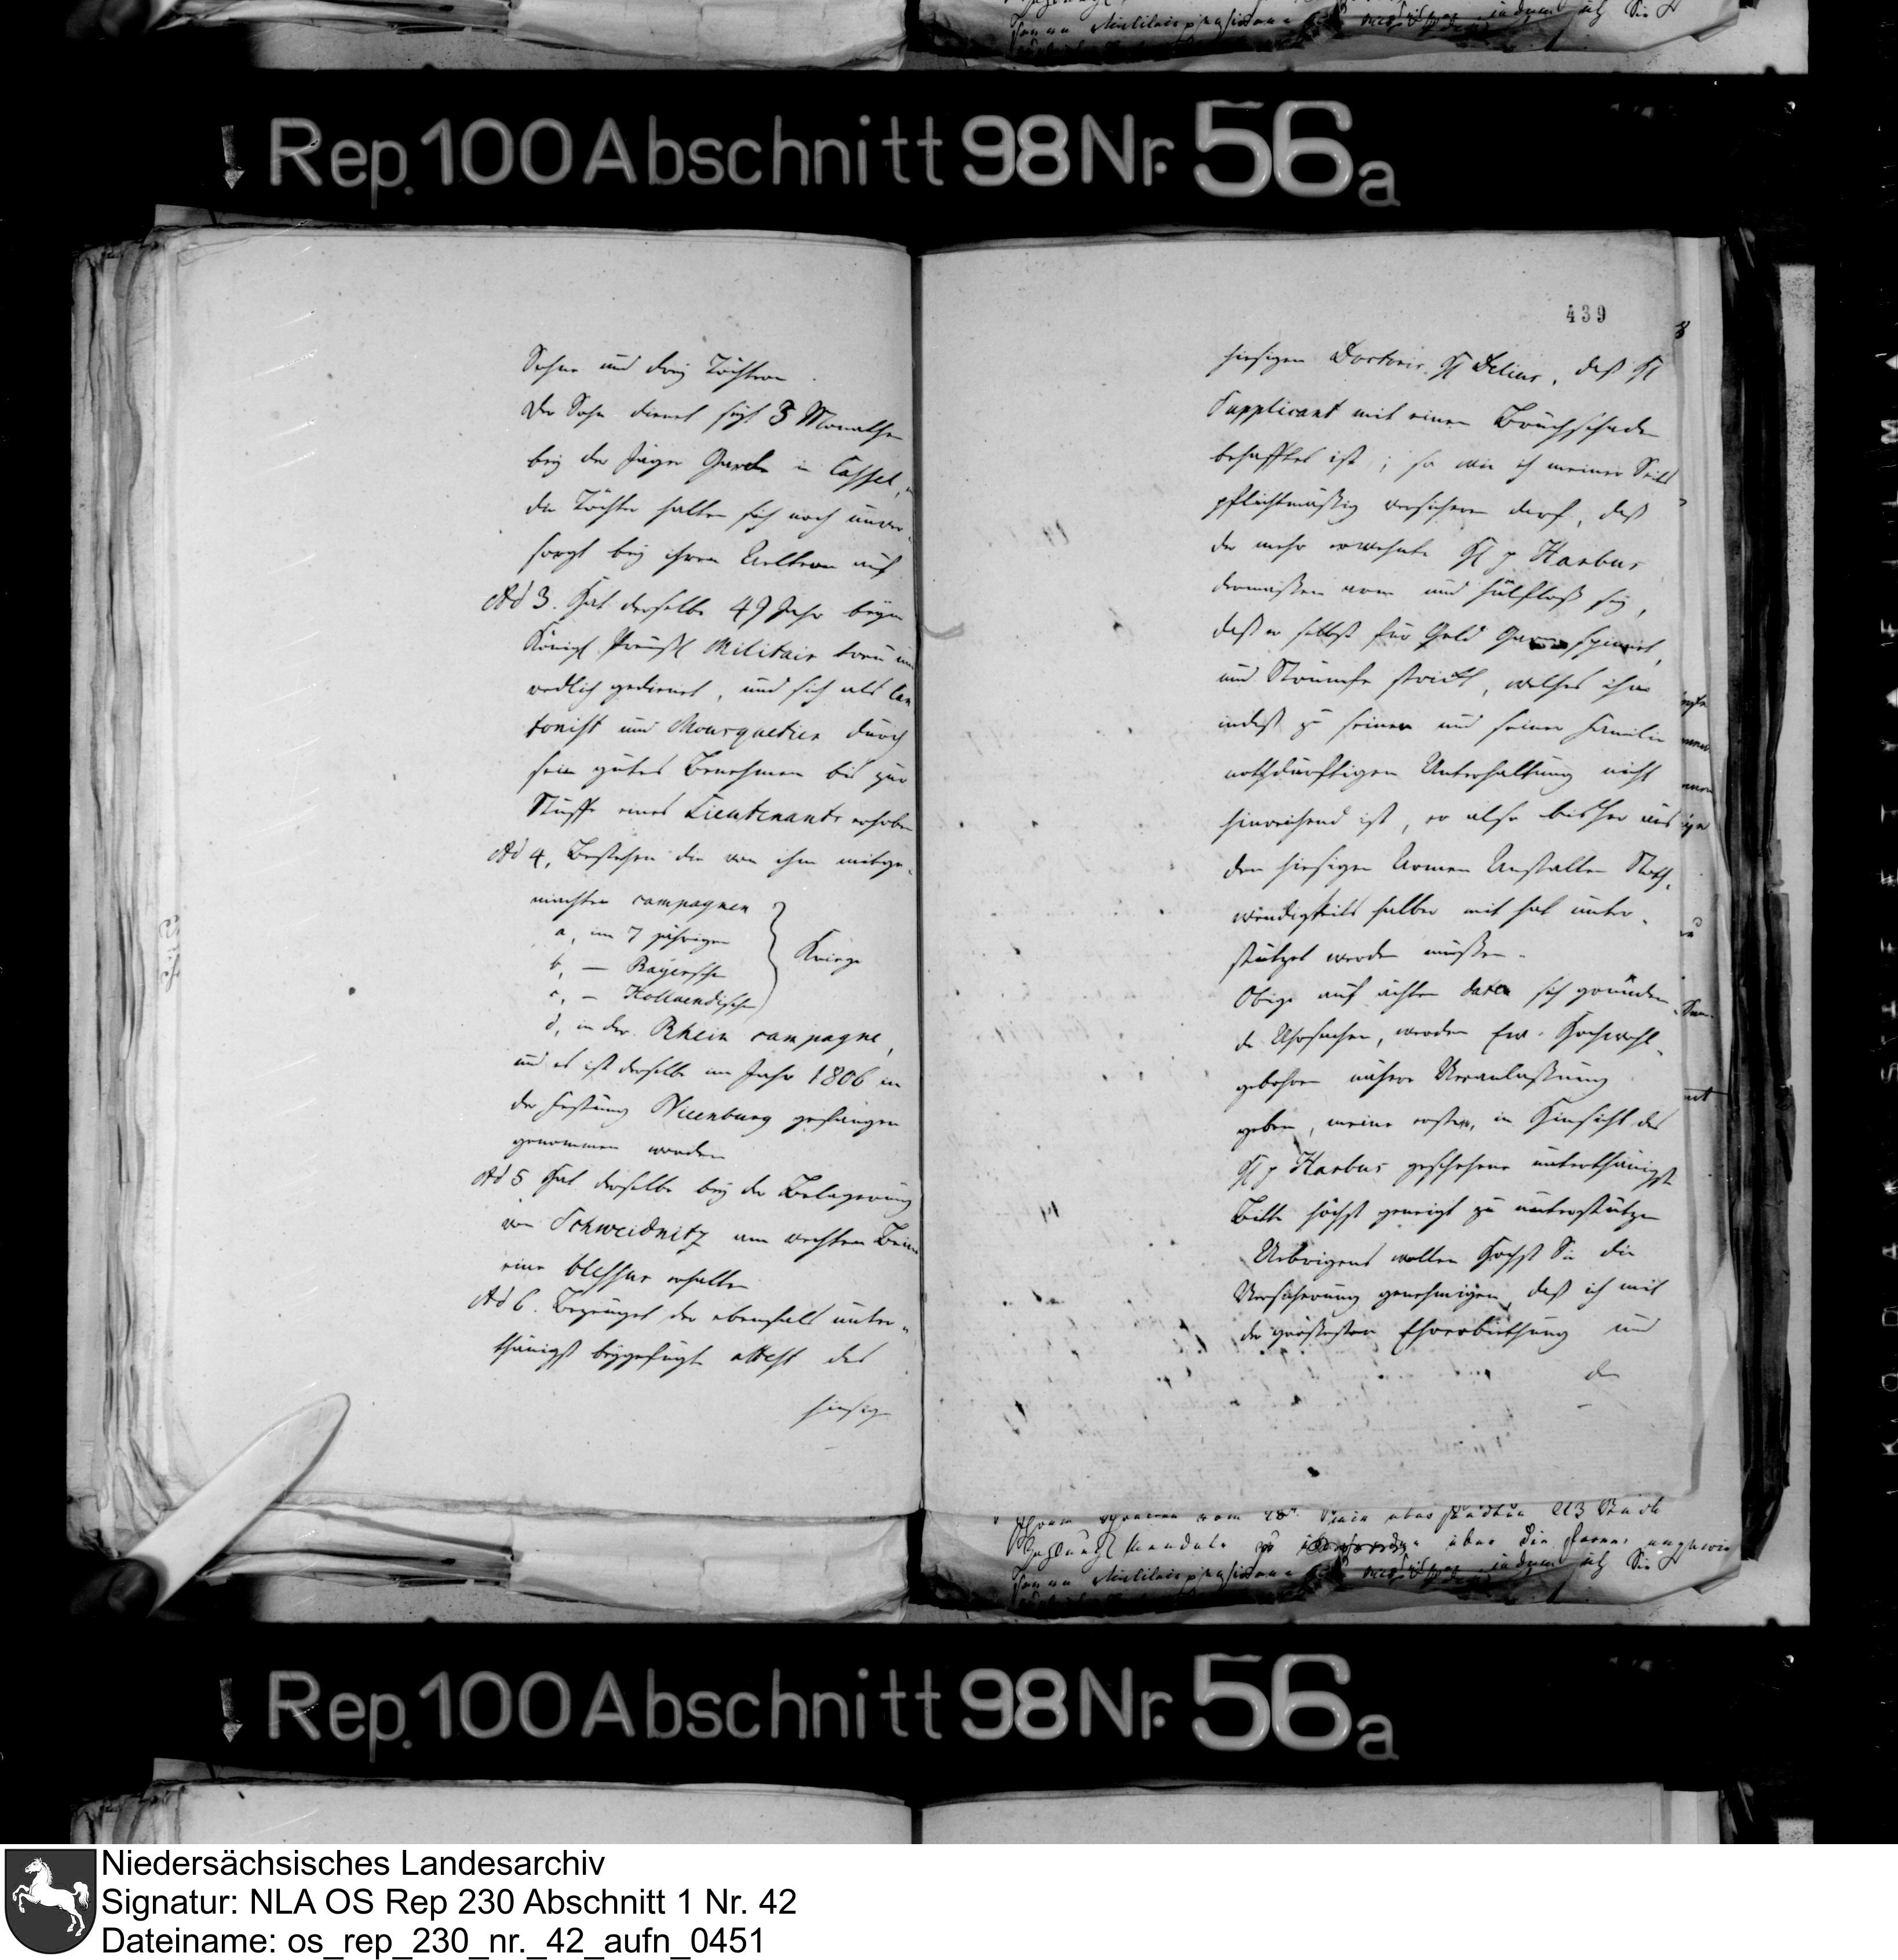 Rep. 100 Abschnitt 98 Nr. 56a
Sohne und drey Töchtern.
Der Sohn dienet seit 3 Monathen
bey der Jäger Garde in Cassel,
die Töchter halten sich noch unver-
sorgt bey ihren Aeltern auf
Ad 3. Hat derselbe 49 Jahr beym
Königl Preußl Militair treu und
redlich gedienet, und sich als Can
tonist und Mousquetier durch
sein gutes Benehmen bis zur
Stuffe eines Lieutenants erhoben
Ad 4, Bestehen die von ihm mitge-
machten campagnen
a, im 7 jährigen
b, — Bayerschen
c, — Hollaendischen
Kriege
d, in der Rhein campagne,
und es ist derselbe im Jahr 1806 in
der Festung Nienburg gefangen
genommen worden
Ad 5 Hat derselbe bey der Belagerung
von Schweidnitz am rechten Beine
eine blessur erhalten
Ad 6. Bezeuget der ebenfals unter-
thänigst beygefügte attest des
hiesig
439
hiesigen Doctoris H Delius, daß H
Supplicant mit einen Bruchschaden
behafftet ist; so wie ich meiner Seits
pflichtmäßig versichern darf, daß
der mehr erwehnte H p Harbus
dermaßen arm und hülflos sey,
daß er selbst für Geld Garn spinnet,
und Strümpfe strickt, welches ihm
indeß zu seiner und seiner Familie
nothdürftigen Unterhaltung nicht
hinreichend ist, er also bisher aus
den hiesigen Armen Anstalten Noth-
wendigkeits halber mit hat unter-
stützet werden müßen.
Obige auf ächten daten sich gründen-
de Uhrsachen, werden Ew. Hochwohl-
gebohren nähere Veranlaßung
geben, meine erstere, in Hinsicht des
H p Harbus geschehene unterthänigste
Bitte höchst geneigt zu unterstützen
Uebrigens wollen Hochst Sie die
Versicherung genehmigen, daß ich mit
der größesten Ehrerbiethung und
der
Rep. 100 Abschnitt 98 Nr. 56a
Niedersächsisches Landesarchiv
Signatur: NLA OS Rep 230 Abschnitt 1 Nr. 42
Dateiname: os_rep_230_nr._42_aufn_0451